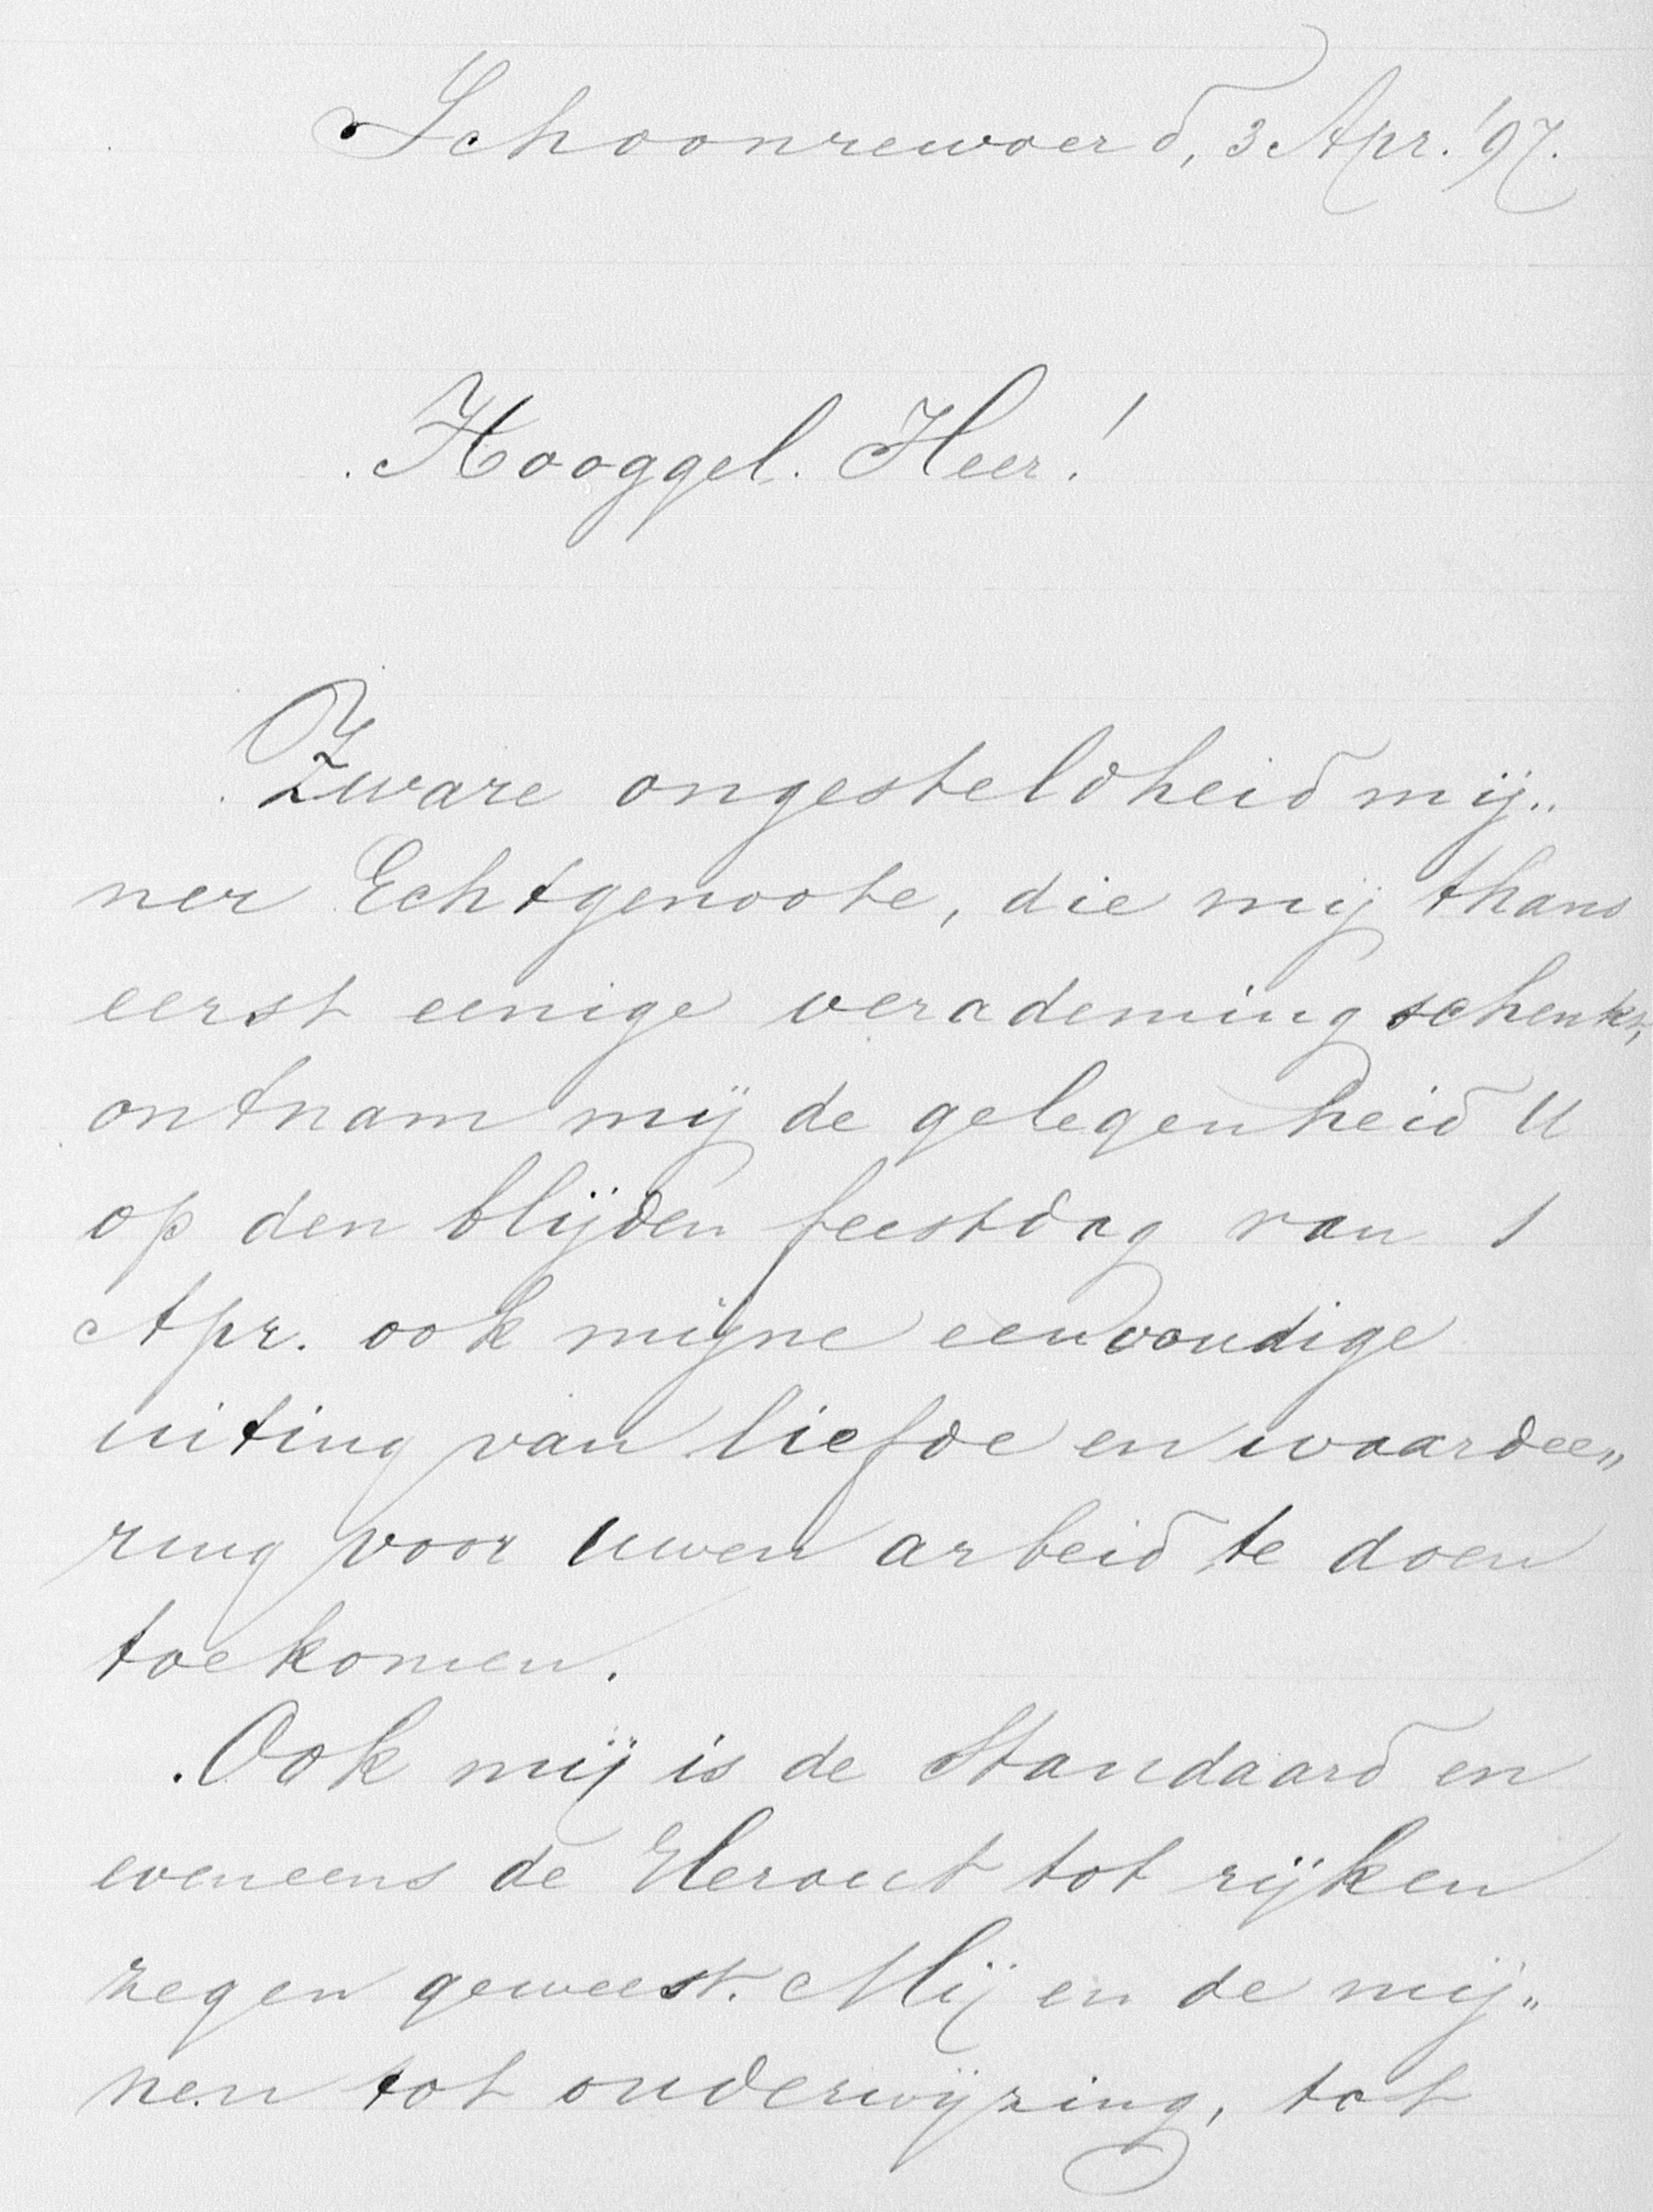 Schoonrewoerd, 3 Apr. '97.
Hooggel. Heer!
Zware ongesteldheid mij„
ner Echtgenoote, die mij thans
eerst eenige verademing schenkt,
ontnam mij de gelegenheid U
op den blijden feestdag van 1
Apr. ook mijne eenvoudige
uiting van liefde en waardee„
ring voor Uwen arbeid te doen
toekomen.
Ook mij is de Standaard en
eveneens de Heraut tot rijken
zegen geweest. Mij en de mij„
nen tot onderwijzing, tot